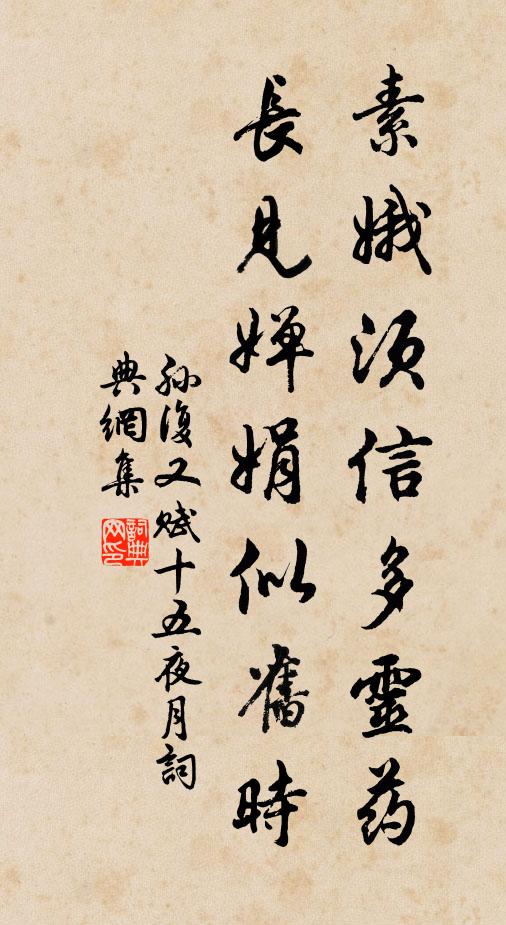 素娥須信多靈药
長見嬋娟似舊時
孫復又賦十五夜月詞
典網集
詞典
网印